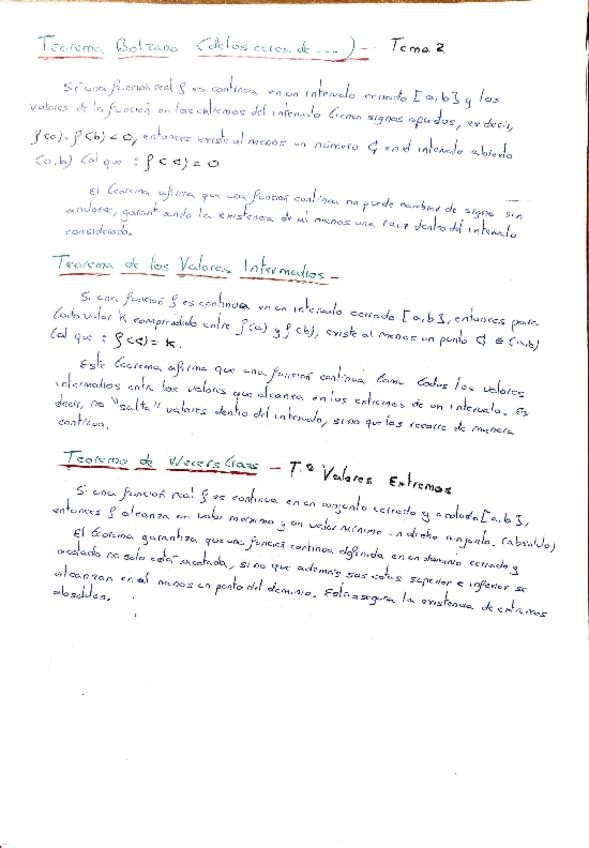 Teorema Bolzano (de los ceros de ...) - Tema 2
Si una función real f es continua en un intervalo cerrado [a,b] y los
valores de la función en los extremos del intervalo tienen signos opuestos, es decir,
f(a)·f(b)<0, entonces existe al menos un número c en el intervalo abierto
(a,b) tal que : f(c)=0
El teorema afirma que una función continua no puede cambiar de signo sin
anularse, garantizando la existencia de al menos una raíz dentro del intervalo
considerado.
Teorema de los Valores Intermedios -
Si una función f es continua en un intervalo cerrado [a,b], entonces para
todo valor k comprendido entre f(a) y f(b), existe al menos un punto c ∈ (a,b)
tal que : f(c)=k.
Este teorema afirma que una función continua toma todos los valores
intermedios entre los valores que alcanza en los extremos de un intervalo. Es
decir, no "salta" valores dentro del intervalo, si no que los recorre de manera
continua.
Teorema de - T.ª Valores Extremos
Si una función real f es continua en un conjunto cerrado y acotado [a,b],
entonces f alcanza un valor máximo y un valor mínimo en dicho conjunto. (absoluto)
El teorema garantiza que una función continua definida en un dominio cerrado y
acotado no solo está acotada, si no que además sus cotas superior e inferior se
alcanzan en al menos un punto del dominio. Esto asegura la existencia de extremos
absolutos.